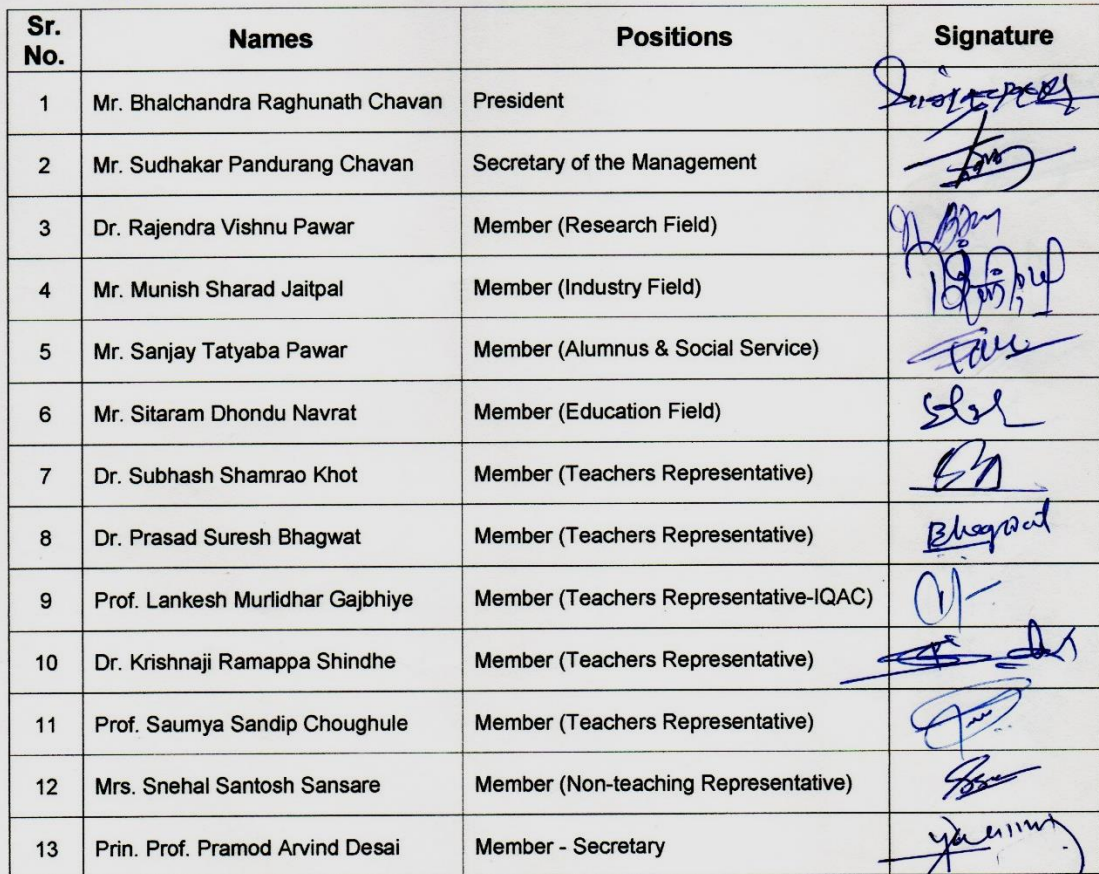 Sr. No. Names Positions Signature
1 Mr. Bhalchandra Raghunath Chavan President
2 Mr. Sudhakar Pandurang Chavan Secretary of the Management
3 Dr. Rajendra Vishnu Pawar Member (Research Field)
4 Mr. Munish Sharad Jaitpal Member (Industry Field)
5 Mr. Sanjay Tatyaba Pawar Member (Alumnus & Social Service)
6 Mr. Sitaram Dhondu Navrat Member (Education Field)
7 Dr. Subhash Shamrao Khot Member (Teachers Representative)
8 Dr. Prasad Suresh Bhagwat Member (Teachers Representative) Bhagwat
9 Prof. Lankesh Murlidhar Gajbhiye Member (Teachers Representative-IQAC)
10 Dr. Krishnaji Ramappa Shindhe Member (Teachers Representative)
11 Prof. Saumya Sandip Choughule Member (Teachers Representative)
12 Mrs. Snehal Santosh Sansare Member (Non-teaching Representative)
13 Prin. Prof. Pramod Arvind Desai Member - Secretary